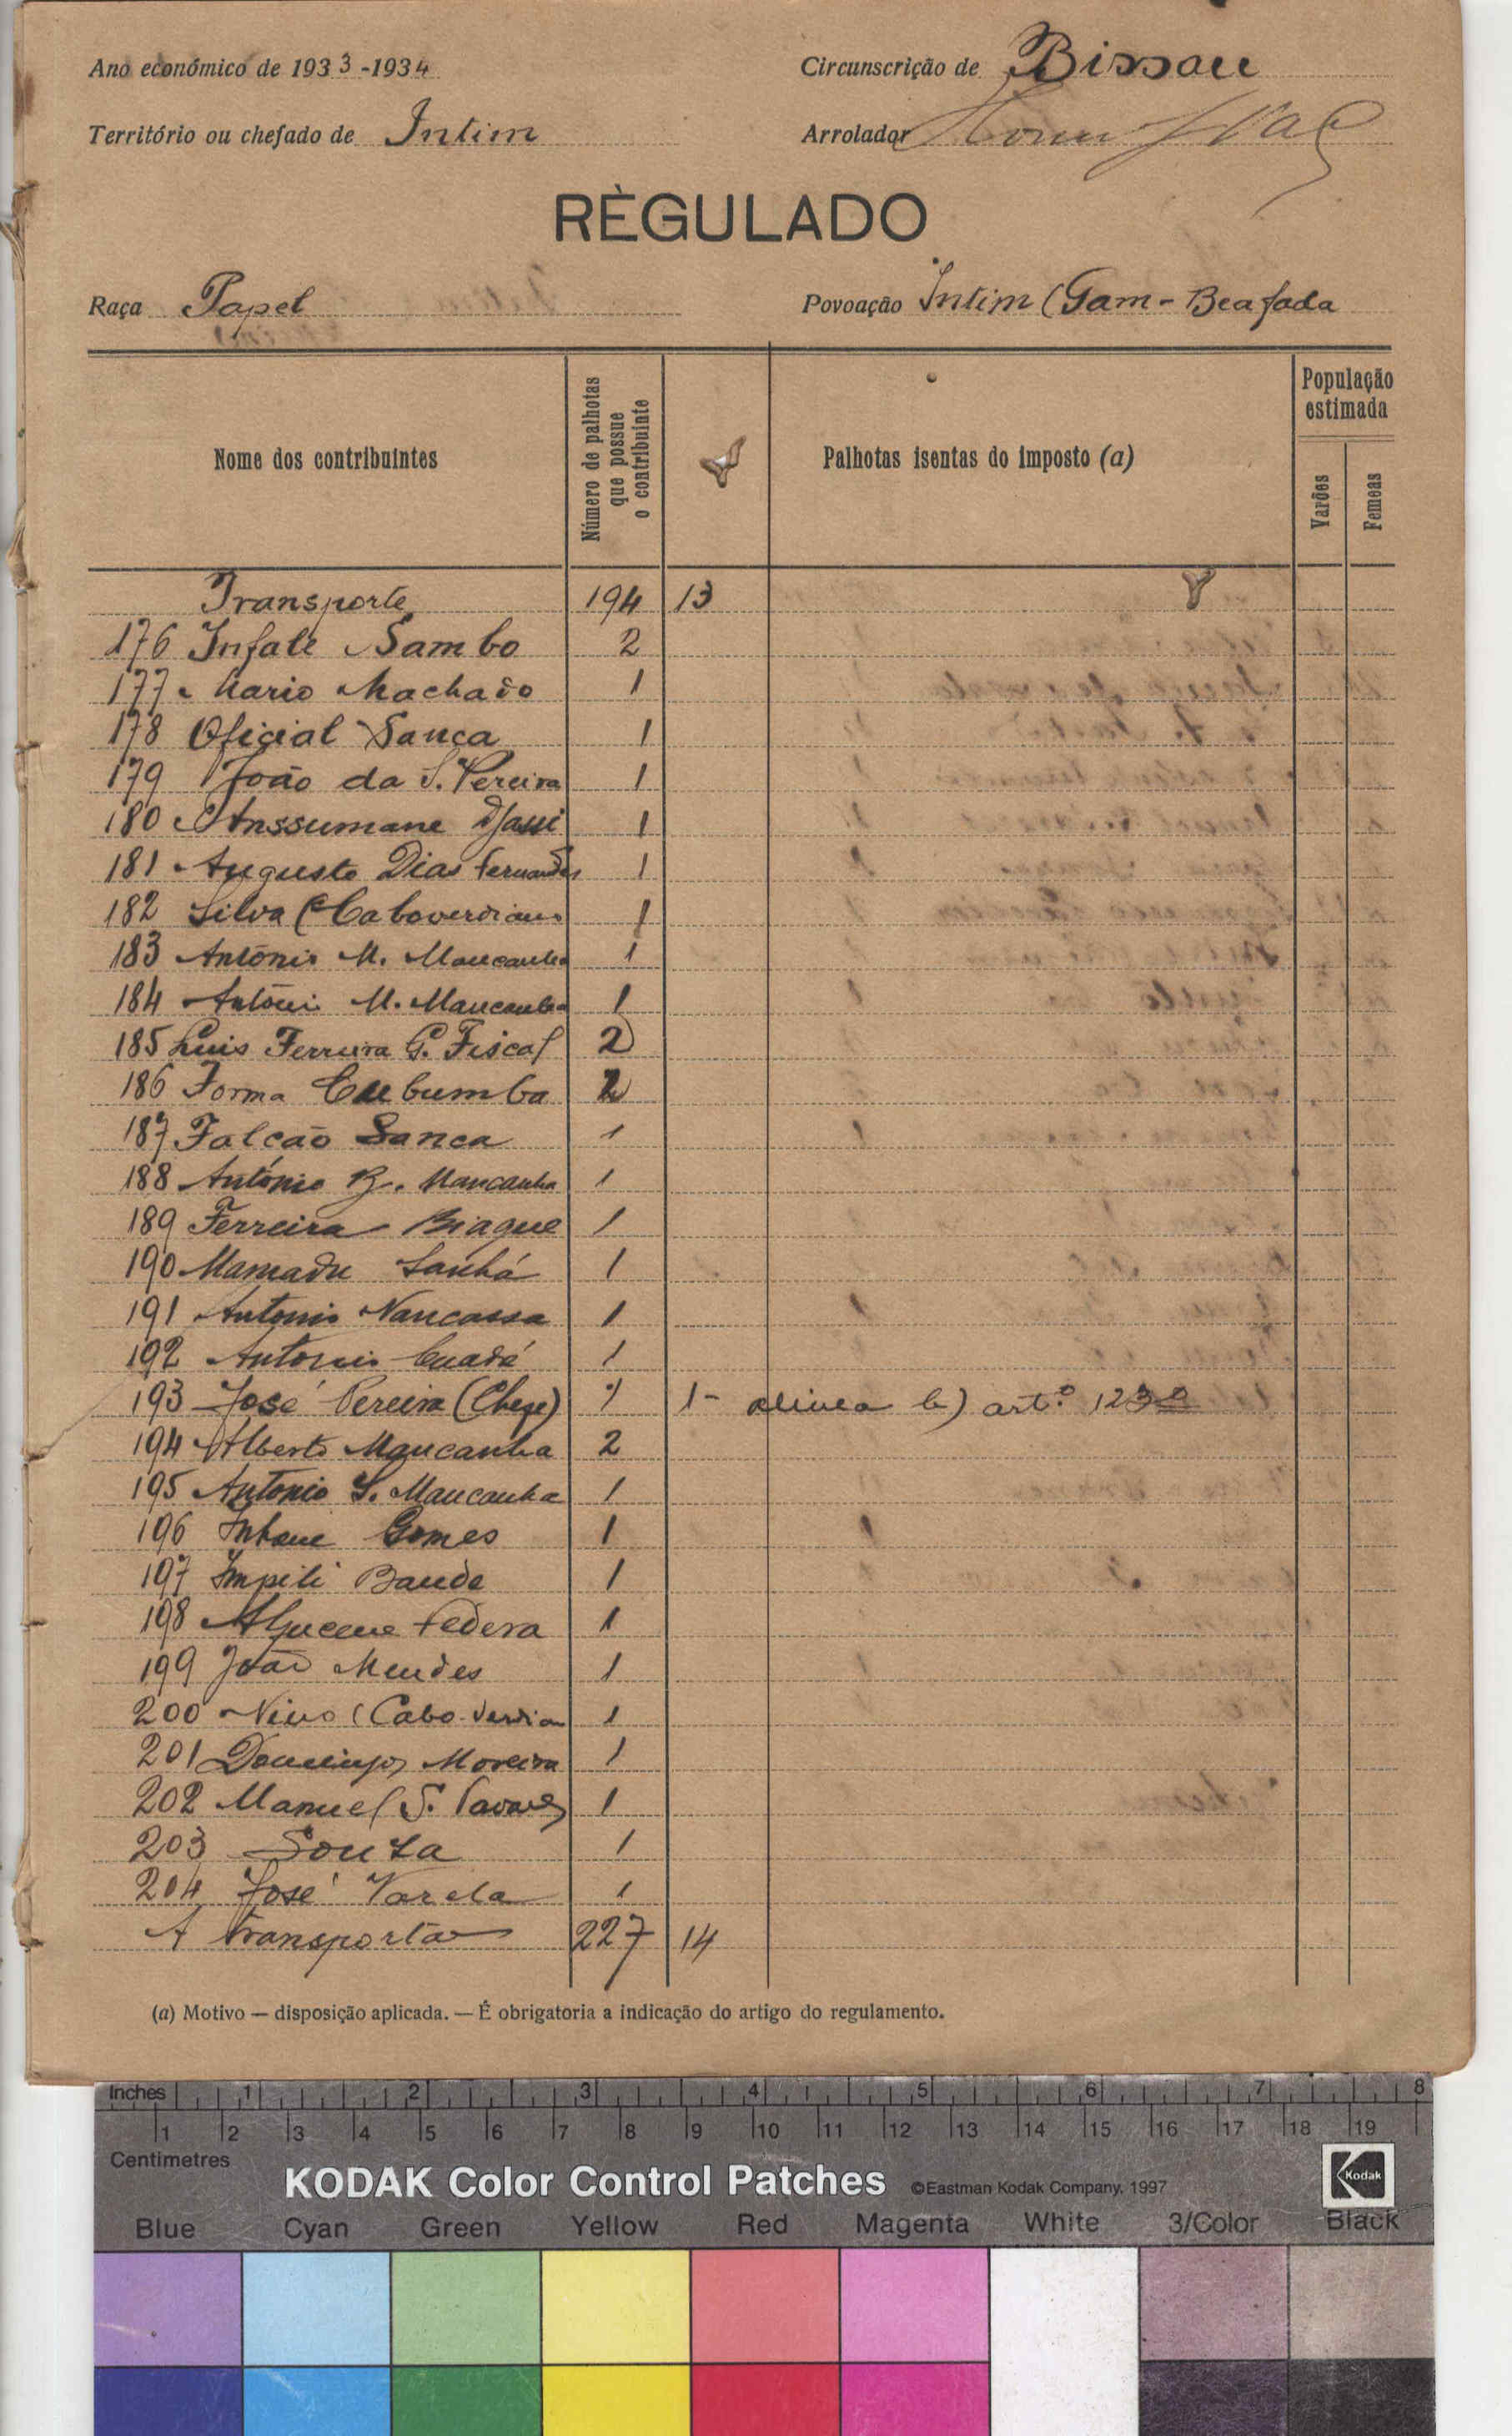 Ano económico de 1933-1934 Circunscrição de Bissau
Território ou chefado de Intim Arrolador
RÈGULADO
Raça Papel Povoação Intim (Gam-Beafada
Nome dos contribuintes
Número de palhotas que possue o contribuinte
Palhotas isentas do imposto (a)
População estimada
Varões Femeas
Transporte 194 13
176 Infale Sambo 2
177 Mario Machado 1
178 Oficial Sanca 1
179 João da S. Pereira 1
180 Anssumane Djassi 1
181 Augusto Dias Fernandes 1
182 Silva (Caboverdiano 1
183 António M. Mancanha 1
184 António M. Mancanha 1
185 Luis Ferreira G. Fiscal 2
186 Forma Cubumba 2
187 Falcão Sanca 1
188 António B. Mancanha 1
189 Ferreira Biague 1
190 Mamadu Sanhá 1
191 Antonio Nancassa 1
192 Antonio 1
193 José Pereira (Chefe) 1 1- alinea b) art.º 123º
194 Alberto Mancanha 2
195 Antonio S. Mancanha 1
196 Gomes 1
197 Impili Baude 1
198 1
199 João Mendes 1
200 (Cabo-Verdian 1
201 Domingos Moreira 1
202 Manuel S. Tavares 1
203 Souza 1
204 José Varela 1
A transportar 227 14
(a) Motivo — disposição aplicada. — É obrigatoria a indicação do artigo do regulamento.
Inches 1 2 3 4 5 6 7 8
1 2 3 4 5 6 7 8 9 10 11 12 13 14 15 16 17 18 19
Centimetres
KODAK Color Control Patches ©Eastman Kodak Company, 1997 Kodak
Blue Cyan Green Yellow Red Magenta White 3/Color Black